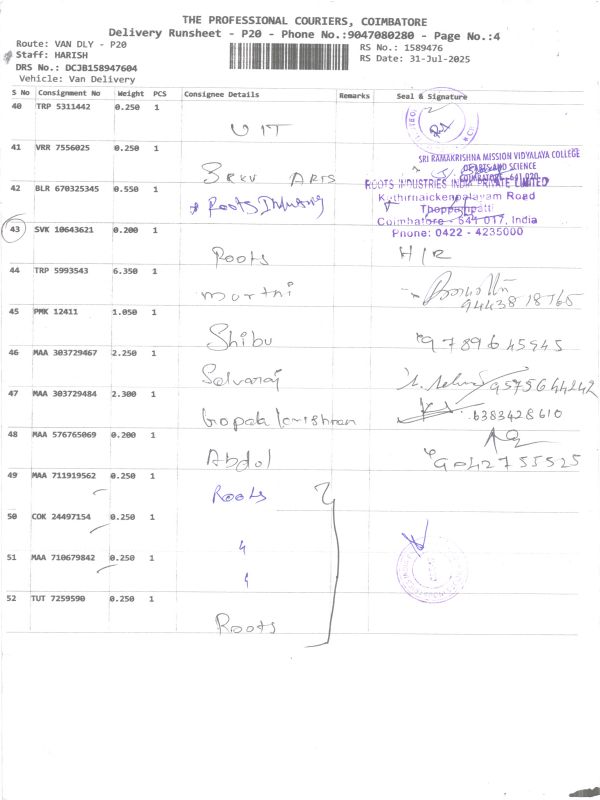 THE PROFESSIONAL COURIERS, COIMBATORE
Delivery Runsheet - P20 - Phone No.:9047080280 - Page No.:4
Route: VAN DLY - P20
Staff: HARISH
DRS No.: DCJB158947604
Vehicle: Van Delivery
RS No.: 1589476
RS Date: 31-Jul-2025
S No Consignment No Weight PCS Consignee Details Remarks Seal & Signature
40 TRP 5311442 0.250 1
UIT
41 VRR 7556025 0.250 1
SRI RAMAKRISHNA MISSION VIDYALAYA COLLEGE
OF ARTS AND SCIENCE
COIMBATORE - 641 020
SRKV ARTS
42 BLR 670325345 0.550 1
Roots Industry
ROOTS INDUSTRIES INDIA PRIVATE LIMITED
Kathirnaickenpalayam Road
Thoppampatti
Coimbatore - 641 017, India
Phone: 0422 - 4235000
43 SVK 10643621 0.200 1
Roots H/R
44 TRP 5993543 6.350 1
Murthi
9443818765
45 PMK 12411 1.050 1
Shibu 9789645945
46 MAA 303729467 2.250 1
Selvaraj 9575644242
47 MAA 303729484 2.300 1
Gopala krishnan 6383428610
48 MAA 576765069 0.200 1
Abdol 9042755525
49 MAA 711919562 0.250 1
Roots
50 COK 24497154 0.250 1
51 MAA 710679842 0.250 1
52 TUT 7259590 0.250 1
Roots